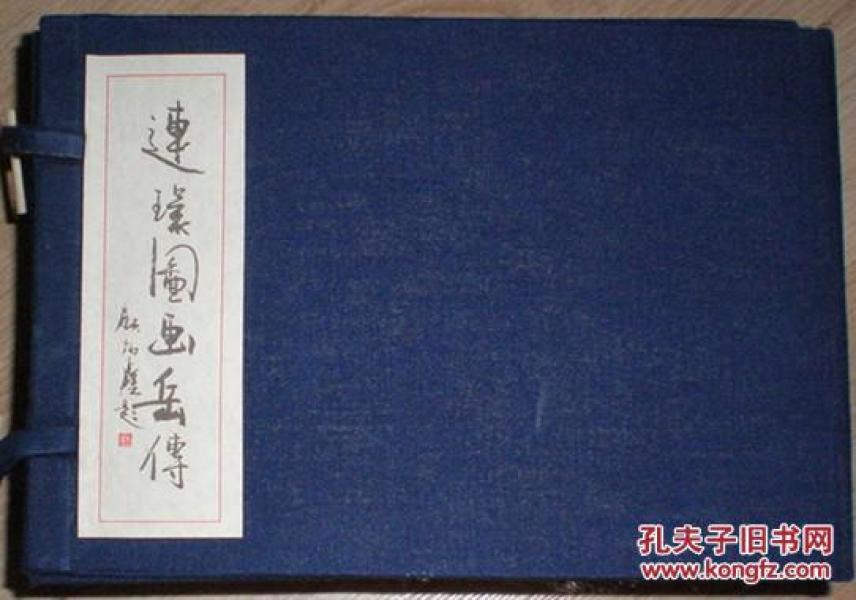 連環圖画岳傳
顾炳鑫题
孔夫子旧书网
www.kongfz.com